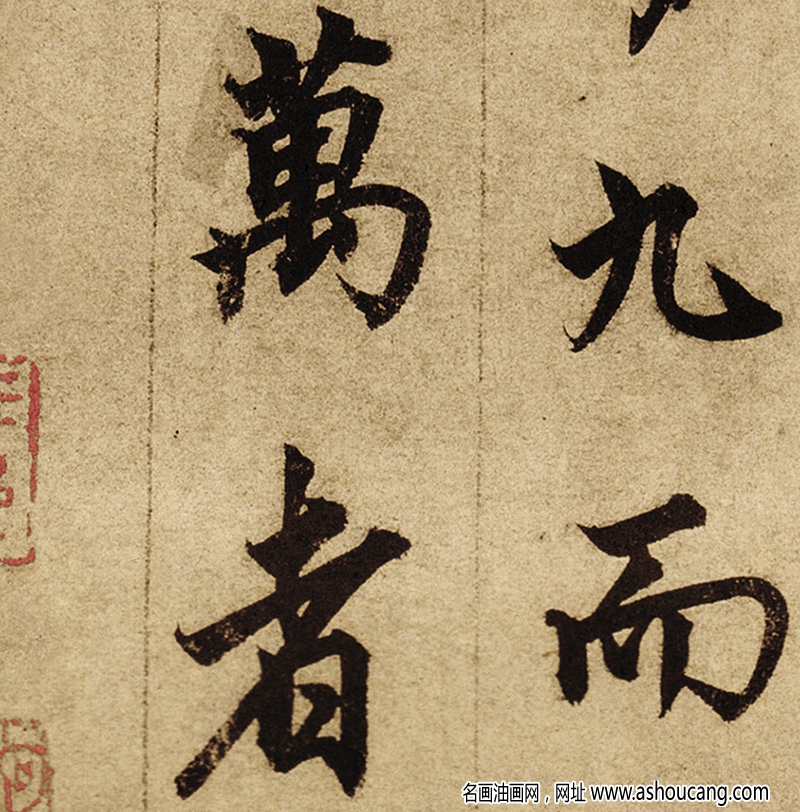 九而
萬者
名画油画网，网址 www.ashoucang.com